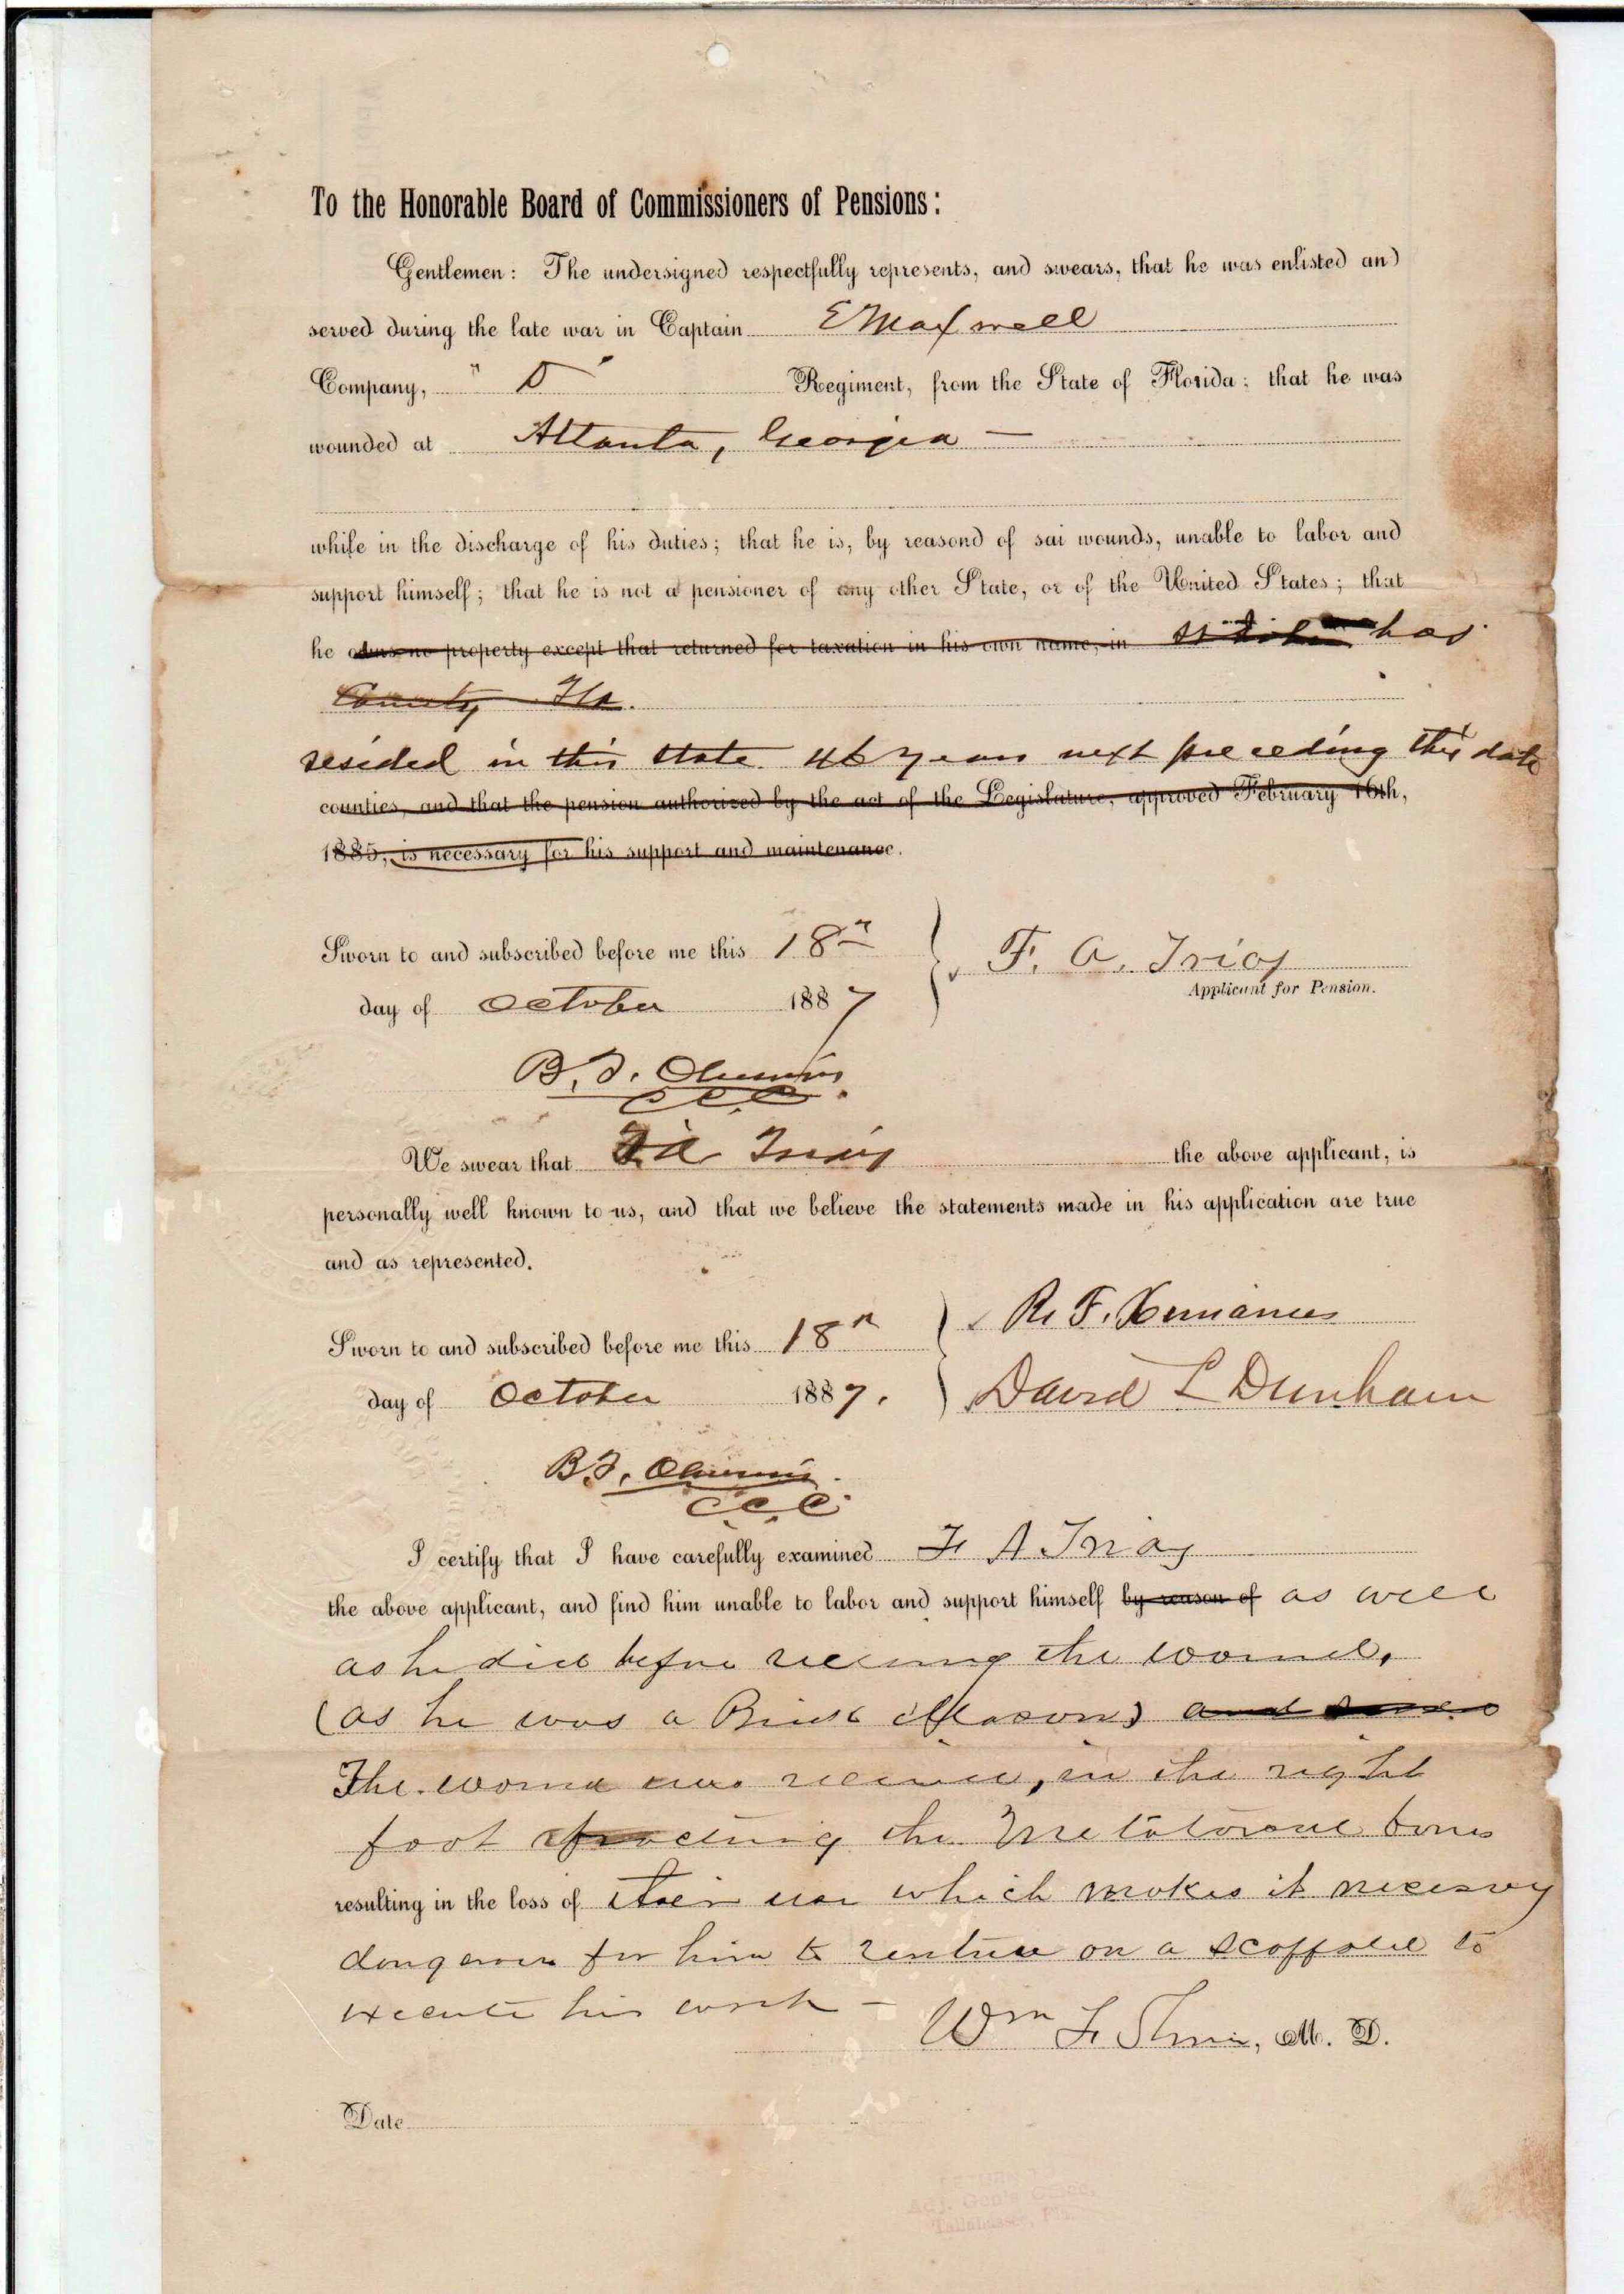 To the Honorable Board of Commissioners of Pensions:
Gentlemen: The undersigned respectfully represents, and swears, that he was enlisted and
served during the late war in Captain E Maxwell
Company, "D" Regiment, from the State of Florida; that he was
wounded at Atlanta, Georgia —
while in the discharge of his duties; that he is, by reasond of sai wounds, unable to labor and
support himself; that he is not a pensioner of any other State, or of the United States; that
he owns no property except that returned for taxation in his own name, in St Johns has
County Fla.
resided in this State 46 years next preceding this date
counties, and that the pension authorized by the act of the Legislature, approved February 16th,
1885, is necessary for his support and maintenance.
Sworn to and subscribed before me this 18th
day of October 1887
F. A. Triay
Applicant for Pension.
B. F.
C C C.
We swear that F A Triay the above applicant, is
personally well known to us, and that we believe the statements made in his application are true
and as represented.
Sworn to and subscribed before me this 18th
day of October 1887.
R. F.
David L Dunham
B. F.
C. C. C.
I certify that I have carefully examined F A Triay
the above applicant, and find him unable to labor and support himself by reason of as well
as he did before receiving the wound,
(as he was a Brick Mason) and
The wound was received, in the right
foot fracturing the Metatarsal bones
resulting in the loss of their use which makes it necessary
dangerous for him to venture on a scaffold to
execute his work —
Wm F, M. D.
Date
RETURN TO
Adj. Gen's Office,
Tallahassee, Fla.